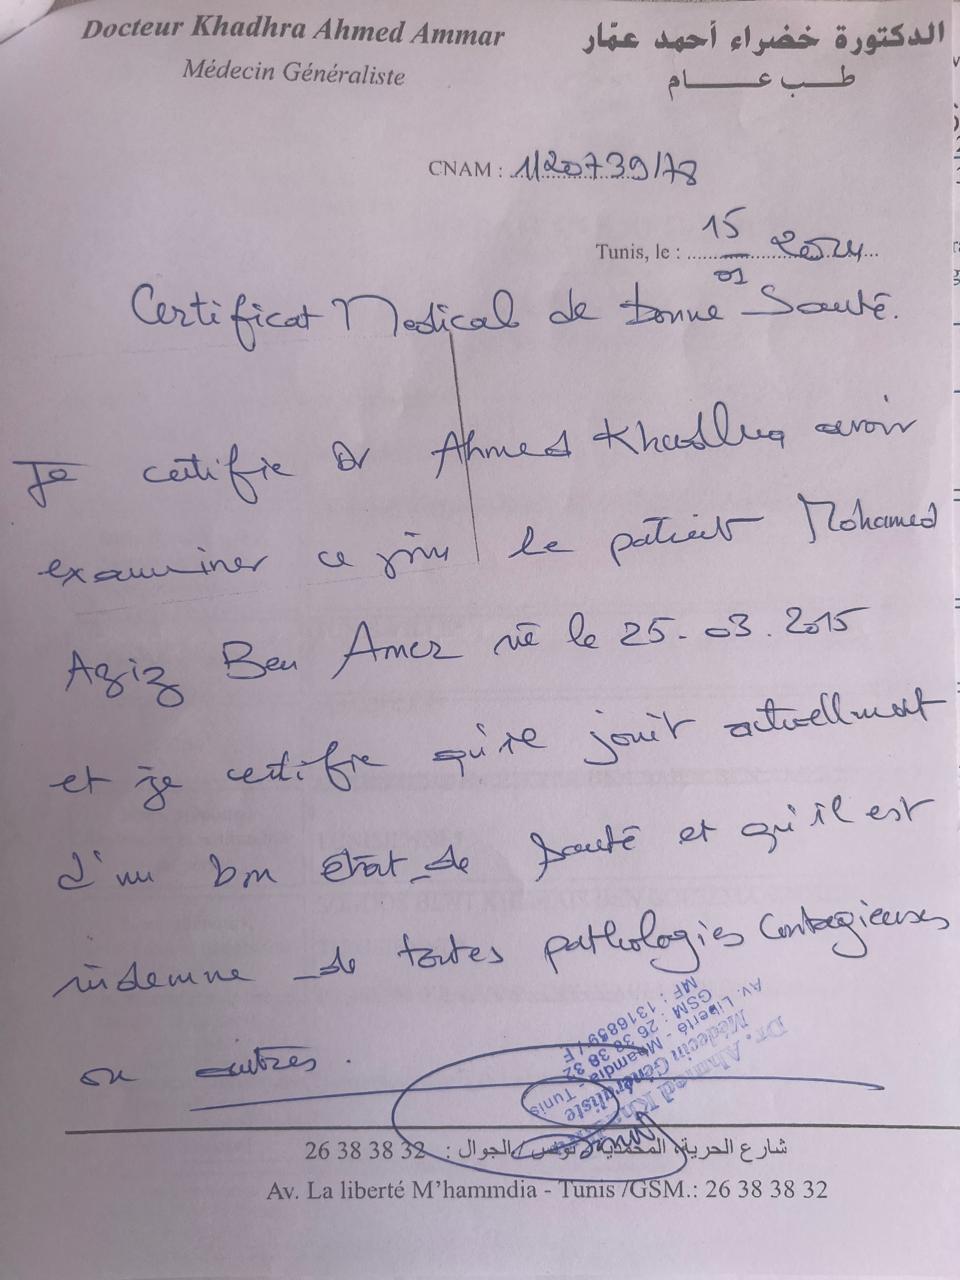 Docteur Khadhra Ahmed Ammar
الدكتورة خضراء أحمد عمّار
Médecin Généraliste
طب عام
CNAM : 1120739/78
Tunis, le : 15/01 2024
Certificat Medical de bonne Santé.
Je certifie Dr Ahmed Khadhra avoir
examiner ce jour le patient Mohamed
Aziz Ben Amer né le 25.03.2015
et je certifie qu'il jouit actuellment
d'un bon état de santé et qu'il est
indemne de toutes pathologies Contagieuses
ou autres.
Dr. Ahmed Khadhra
Médecin Généraliste
Av. Liberté - Mhamdia - Tunis
GSM : 26 38 38 32
MF : 1316859/F
شارع الحرية المحمدية تونس / الجوال : 26 38 38 32
Av. La liberté M'hammdia - Tunis /GSM.: 26 38 38 32